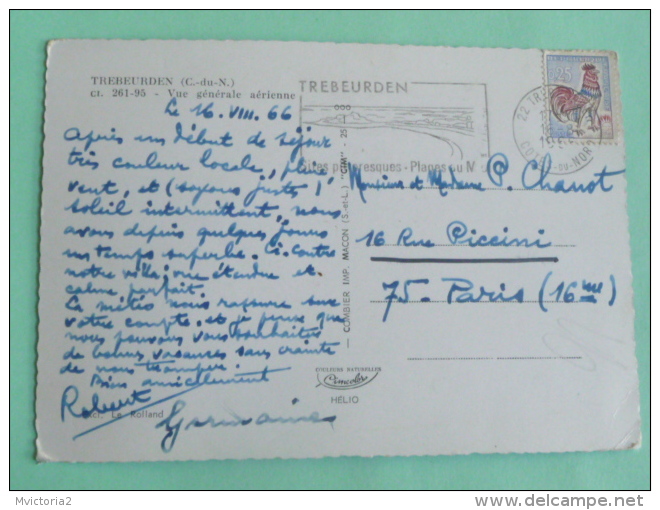 TREBEURDEN (C.-du-N.)
CI. 261-95 - Vue générale aérienne
Le 16. VIII. 66
Après un début de séjour
très couleur locale, pluie
vent, et (soyons justes !)
soleil intermittent, nous
avons depuis quelques jours
un temps superbe. Ci-contre
notre ville, vue étendue et
calme parfait.
La météo nous rassure sur
votre compte, et je pense que
nous pouvons vous souhaiter
de bonnes vacances sans crainte
de nous tromper !
Bien amicalement
Robert
Germaine
Excl. Le Rolland
COMBIER IMP. MACON (S.-et-L.) "CIM"
COULEURS NATURELLES
Cimcolor
HÉLIO
TREBEURDEN
Sites pittoresques - Plages au M
22 TR
COTES-DU-NORD
25
Monsieur et Madame P. Chanot
16 Rue Piccini
75 - Paris (16me)
Mvictoria2
www.delcampe.net